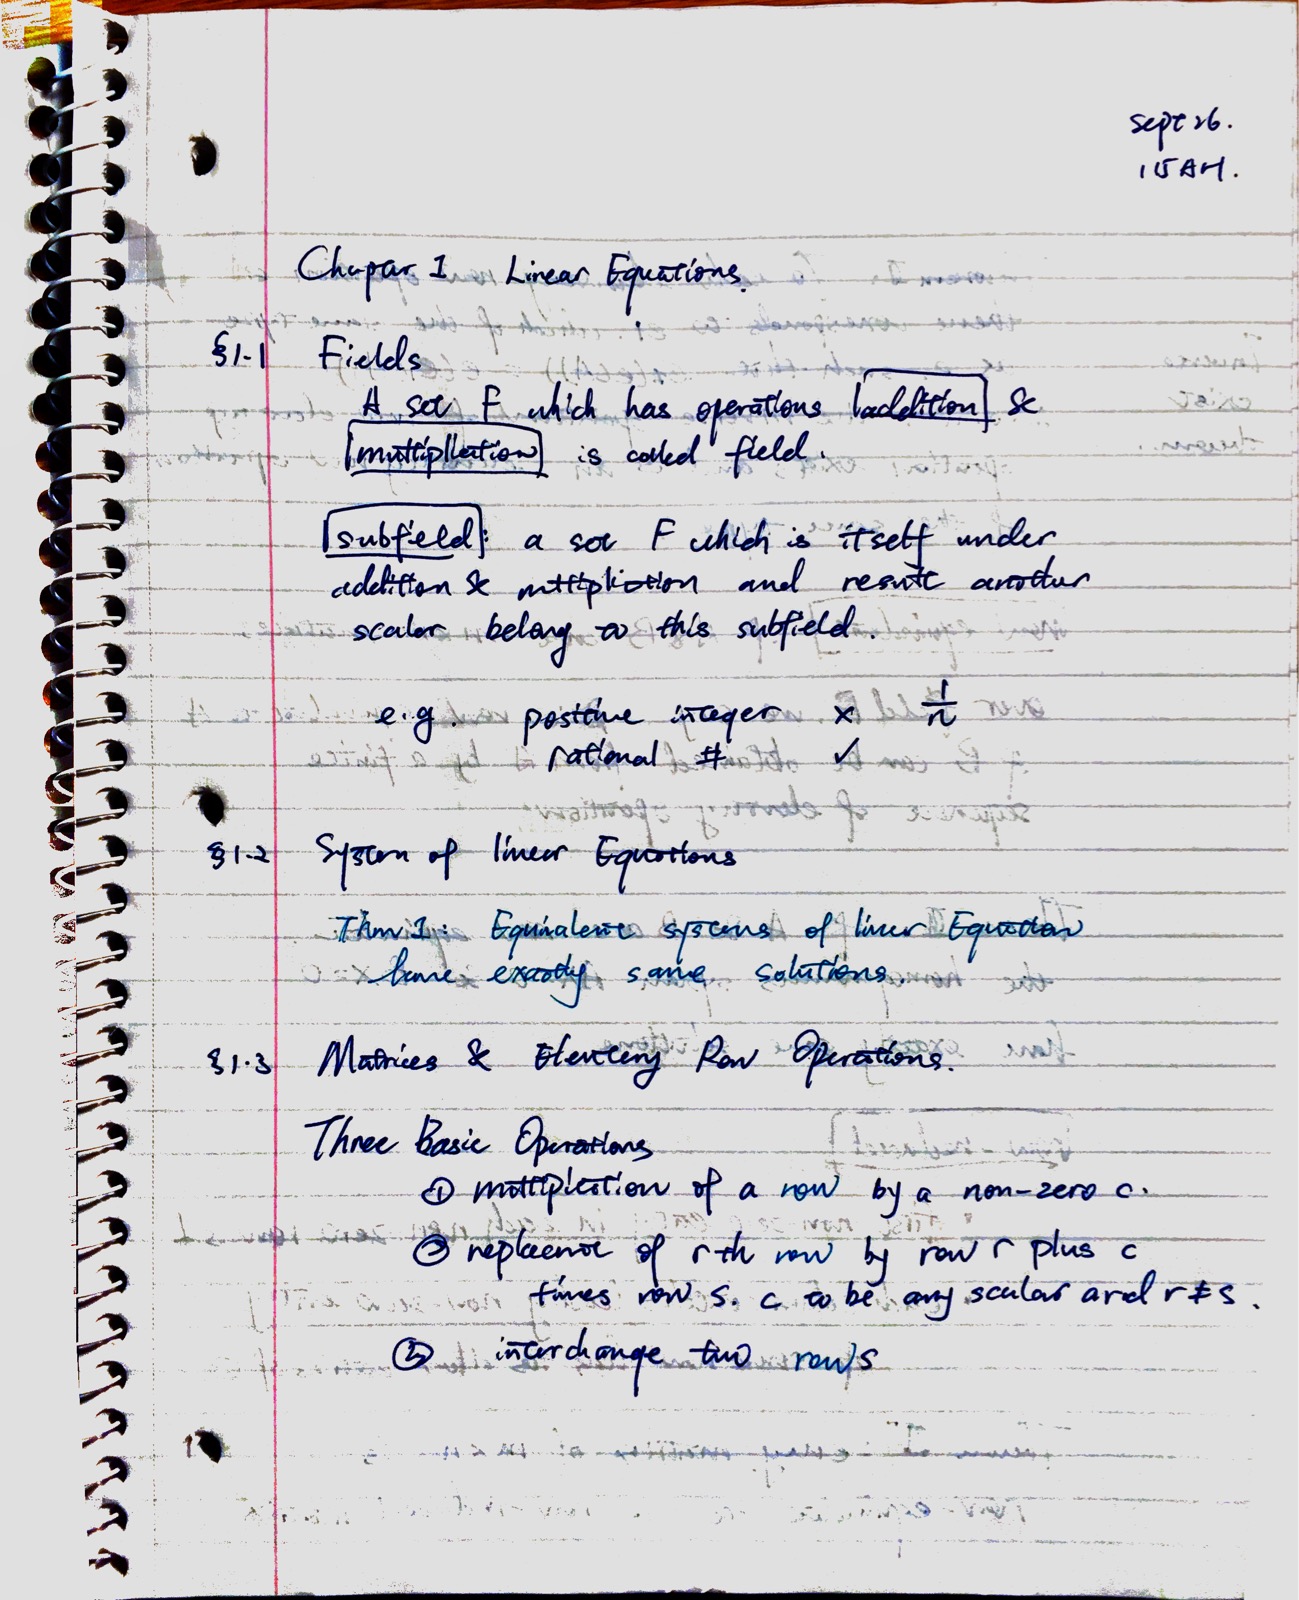 Sept 26.
115 AM.
Chapter 1 Linear Equations.
§1-1 Fields
A set F which has operations addition &
multiplication is called field.
subfield: a set F which is itself under
addition & mttiplication and result another
scalar belong to this subfield.
e.g. positive integer × 1/n
rational # ✓
§1.2 System of linear Equations
Thm 1: Equivalent systems of linear Equation
have exactly same solutions.
§1.3 Matrices & Row Operations.
Three Basic Operations
① multiplication of a row by a non-zero c.
② replacement of r th row by row r plus c
times row s. c to be any scalar and r ≠ s.
③ interchange two rows